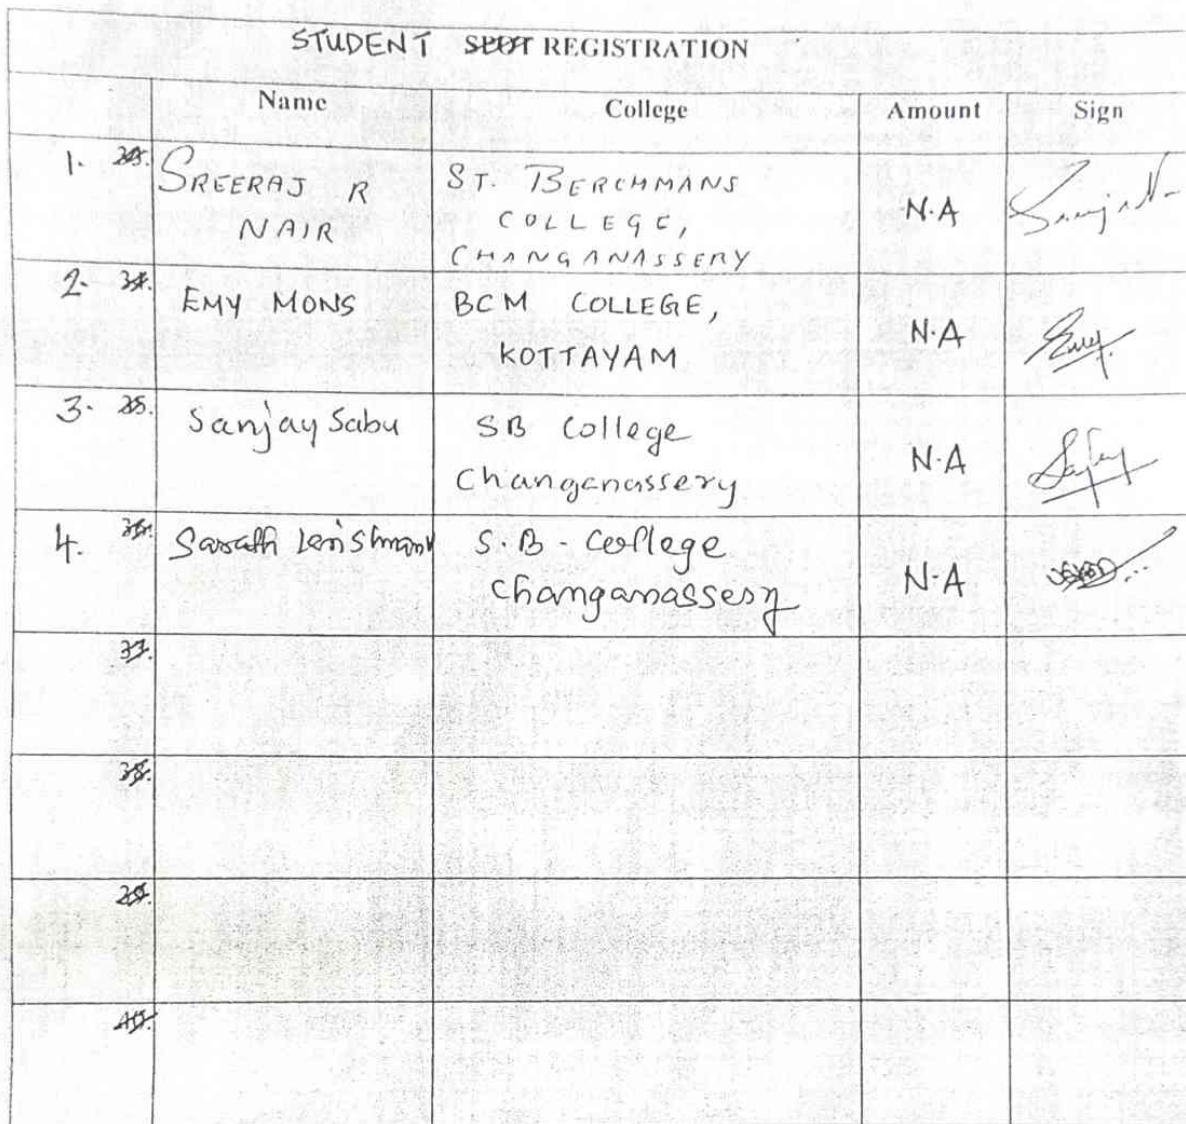 STUDENT SPOT REGISTRATION
Name College Amount Sign
1. 33. SREERAJ R ST. BERCHMANS
NAIR COLLEGE, N.A
CHANGANASSERY
2. 34. EMY MONS BCM COLLEGE, N.A
KOTTAYAM
3. 35. Sanjay Sabu SB College
Changanassery N.A
4. 36. Sarath S.B - College
Changanassery N.A
37.
38.
39.
40.